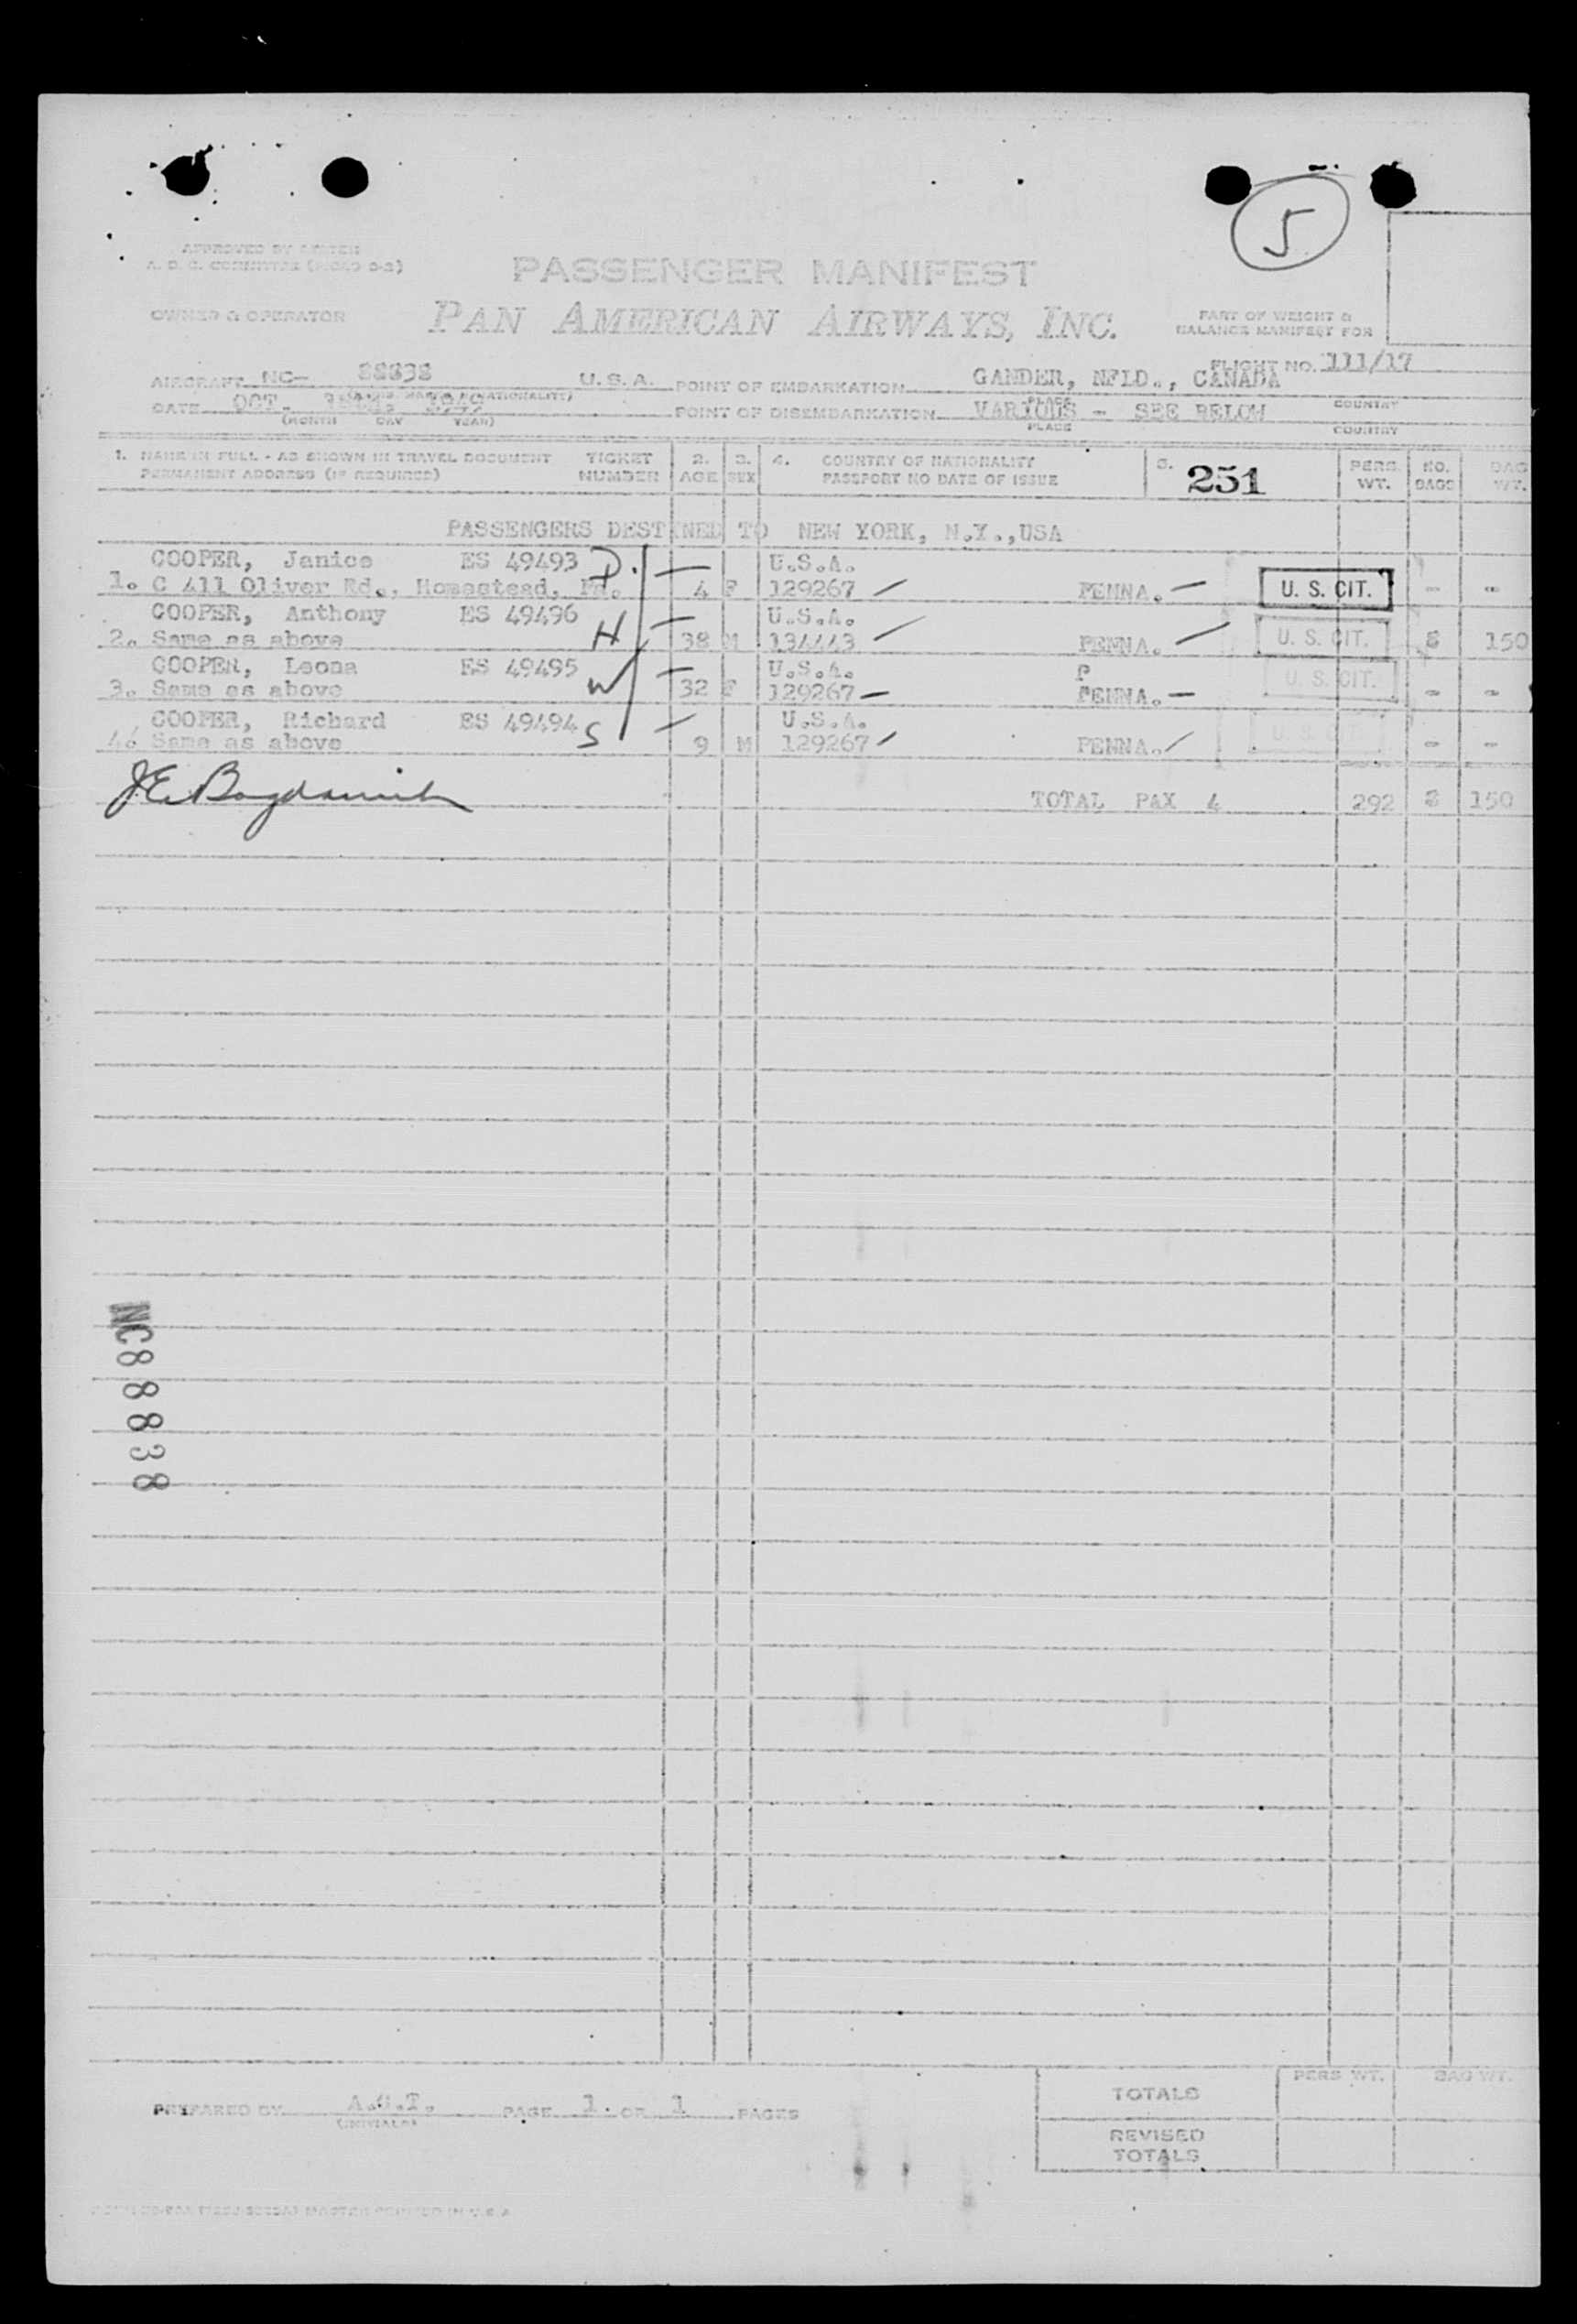 5
APPROVED BY
PASSENGER MANIFEST
OWNER & OPERATOR PAN AMERICAN AIRWAYS, INC. PART OF WEIGHT &
BALANCE MANIFEST FOR
FLIGHT NO. 111/17
AIRCRAFT NC- 88838 U.S.A. POINT OF EMBARKATION GANDER, NFLD., CANADA
(NATIONALITY) PLACE COUNTRY
DATE OCT. 1949 POINT OF DISEMBARKATION VARIOUS - SEE BELOW
(MONTH DAY YEAR) PLACE COUNTRY
1. NAME IN FULL - AS SHOWN IN TRAVEL DOCUMENT TICKET 2. 3. 4. COUNTRY OF NATIONALITY 5. 251 PERS. NO. BAG
PERMANENT ADDRESS (IF REQUIRED) NUMBER AGE SEX PASSPORT NO DATE OF ISSUE WT. BAGS WT.
PASSENGERS DESTINED TO NEW YORK, N.Y.,USA
COOPER, Janice ES 49493 D. U.S.A.
1. C 411 Oliver Rd., Homestead, Pa. 4 F 129267 PENNA. U. S. CIT. - -
COOPER, Anthony ES 49496 U.S.A.
2. Same as above H 38 M 134443 PENNA. U. S. CIT. 8 150
COOPER, Leona ES 49495 U.S.A. P
3. Same as above W 32 F 129267 PENNA. U. S. CIT. - -
COOPER, Richard ES 49494 U.S.A.
4. Same as above S 9 M 129267 PENNA. U. S. CIT. - -
TOTAL PAX 4 292 8 150
NC88838
PREPARED BY PAGE 1 OF 1 PAGES
(INITIALS)
PERS WT. BAG WT.
TOTALS
REVISED
TOTALS